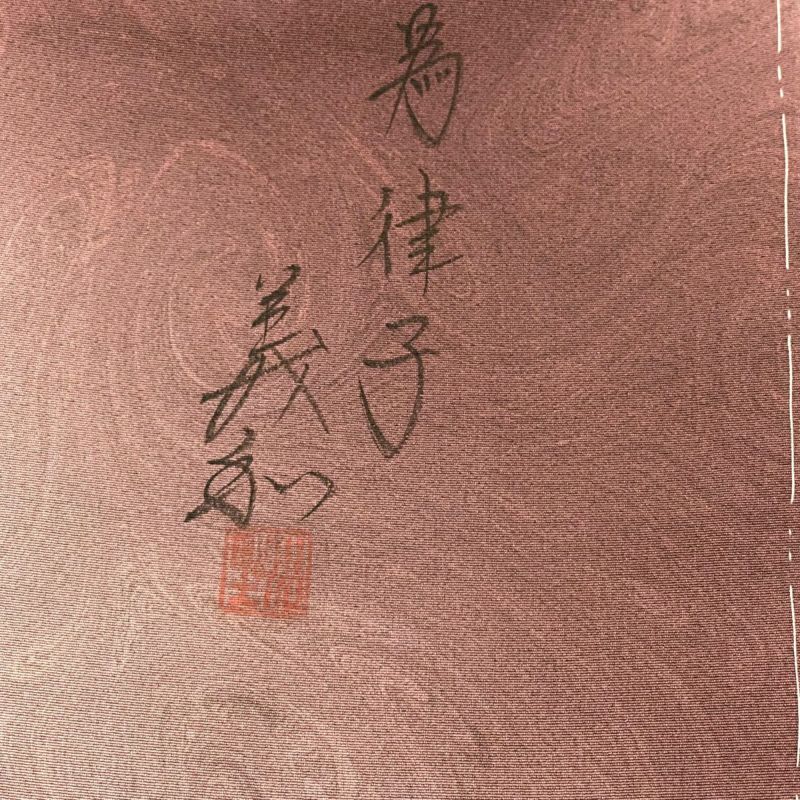 為律子
義和